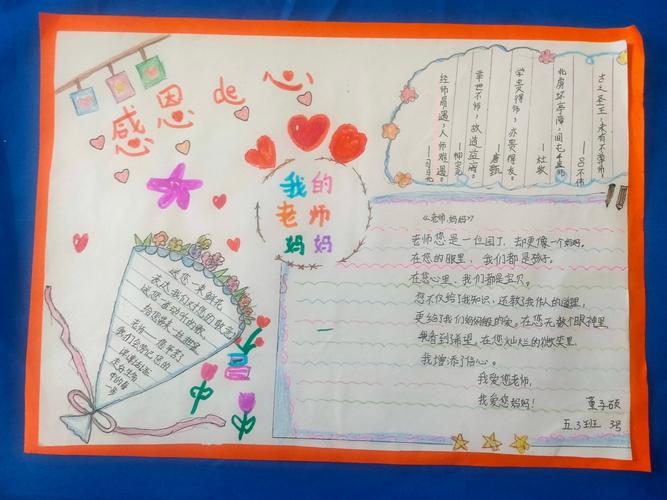 感恩de心
我的
老师
妈妈
古之圣王，未有不尊师
——吕不韦
——杜牧
学贵得师，亦贵得友。
——唐甄
举世不师，故道益离。
——柳宗元
经师易遇，人师难遇。
《老师，妈妈》
老师您是一位园丁，却更像一个妈妈。
在您的眼里，我们都是孩子。
在您心里，我们都是宝贝。
您不仅给了我知识，还教了我作人的道理，
更给了我们妈妈般的爱。在您无数个眼神里
我看到了希望，在您灿烂的微笑里
我增添了信心。
我爱您老师，
我爱您妈妈！
董子硕
五.3班 3号
送您一束鲜花
表达我们对您的敬意
送您一首动听的歌
老师——您辛苦了
我们会常记您的
谆谆话语
走好生命
中的每
一步